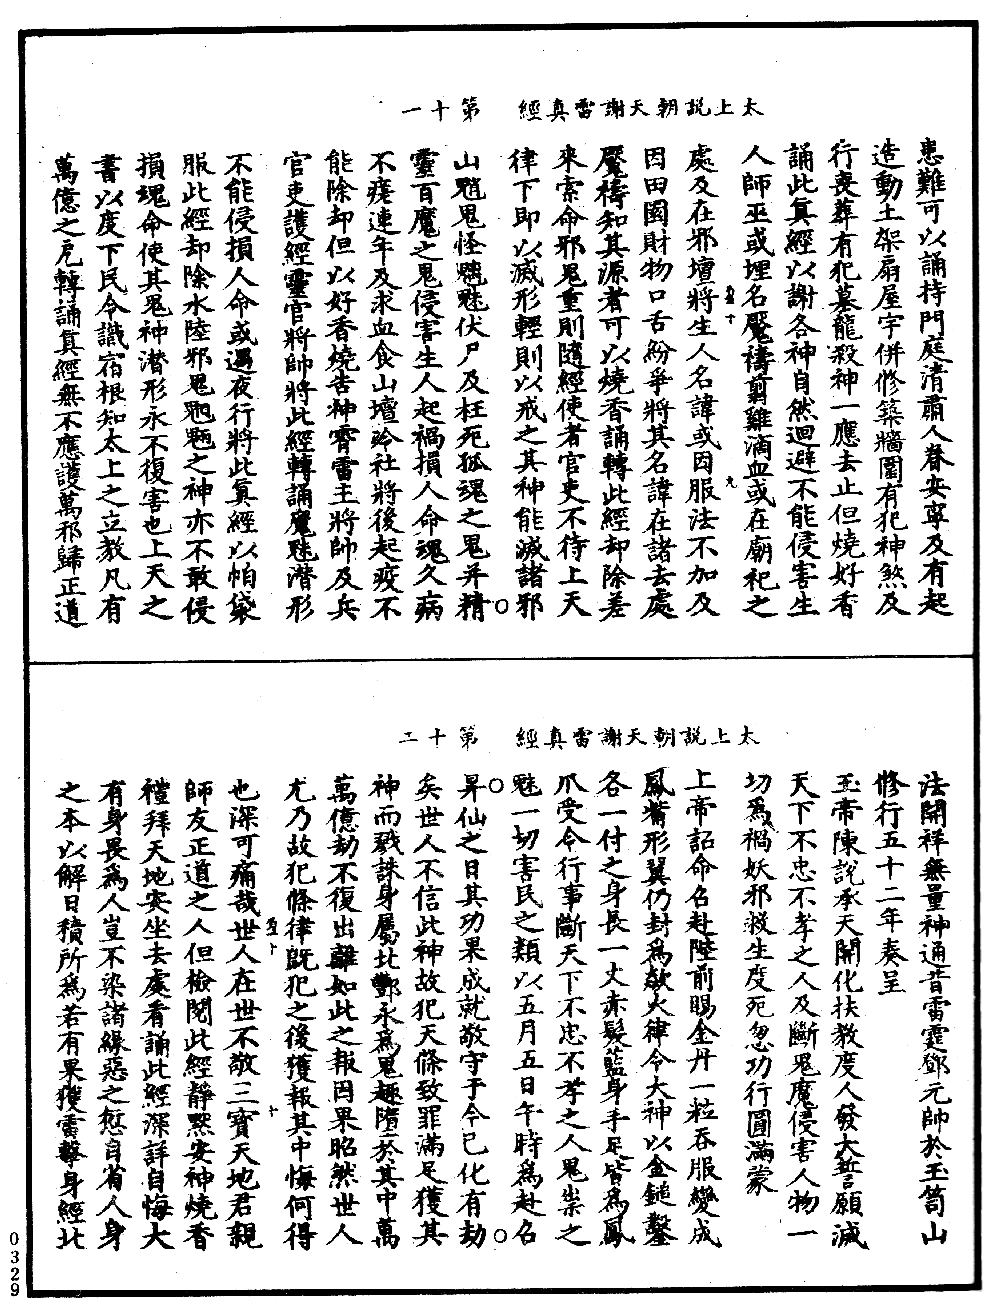 太上說朝天謝雷真經　第十一
患難可以誦持門庭清肅人眷安寧及有起
造動土架扇屋宇併修築牆圍有犯神煞及
行喪葬有犯墓龍殺神一應去止但燒好香
誦此真經以謝各神自然迴避不能侵害生
人師巫或埋名魘禱剪雞滴血或在廟祀之
處及在邪壇將生人名諱或因服法不加及
因田園財物口舌紛爭將其名諱在諸去處
魘禱知其源者可以燒香誦轉此經却除差
來索命邪鬼重則隨經使者官吏不待上天
律下即以滅形輕則以戒之其神能滅諸邪
山魈鬼怪魑魅伏尸及枉死孤魂之鬼并精
靈百魔之鬼侵害生人起禍損人命魂久病
不痊連年及求血食山壇社將後起疫不
能除却但以好香燒告神霄雷主將帥及兵
官吏護經靈官將帥將此經轉誦魔魅潛形
不能侵損人命或遇夜行將此真經以帕袋
服此經却除水陸邪鬼之神亦不敢侵
損魂命使其鬼神潛形永不復害也上天之
書以度下民令識宿根知太上之立教凡有
萬億之厄轉誦真經無不應護萬邪歸正道
太上說朝天謝雷真經　第十二
法開祥無量神通昔雷霆鄧元帥於玉笥山
修行五十二年奏呈
玉帝陳說承天開化扶教度人發大誓願滅
天下不忠不孝之人及斷鬼魔侵害人物一
切為禍妖邪救生度死忽功行圓滿蒙
上帝詔命召赴陛前賜金丹一粒吞服變成
鳳觜形翼仍封為欻火律令大神以金鎚鑿
各一付之身長一丈赤髮藍身手足皆為鳳
爪受令行事斷天下不忠不孝之人鬼祟之
魅一切害民之類以五月五日午時為赴召
昇仙之日其功果成就敬守于今已化有劫
矣世人不信此神故犯天條致罪滿足獲其
神而戮誅身屬北酆永為鬼趣墮於其中萬
萬億劫不復出離如此之報因果昭然世人
尤乃故犯條律既犯之後獲報其中悔何得
也深可痛哉世人在世不敬三寶天地君親
師友正道之人但檢閱此經靜默安神燒香
禮拜天地安坐去處看誦此經深詳自悔大
有身畏為人豈不染諸緣惡之愆自省人身
之本以解日積所為若有果獲雷擊身經北
0329